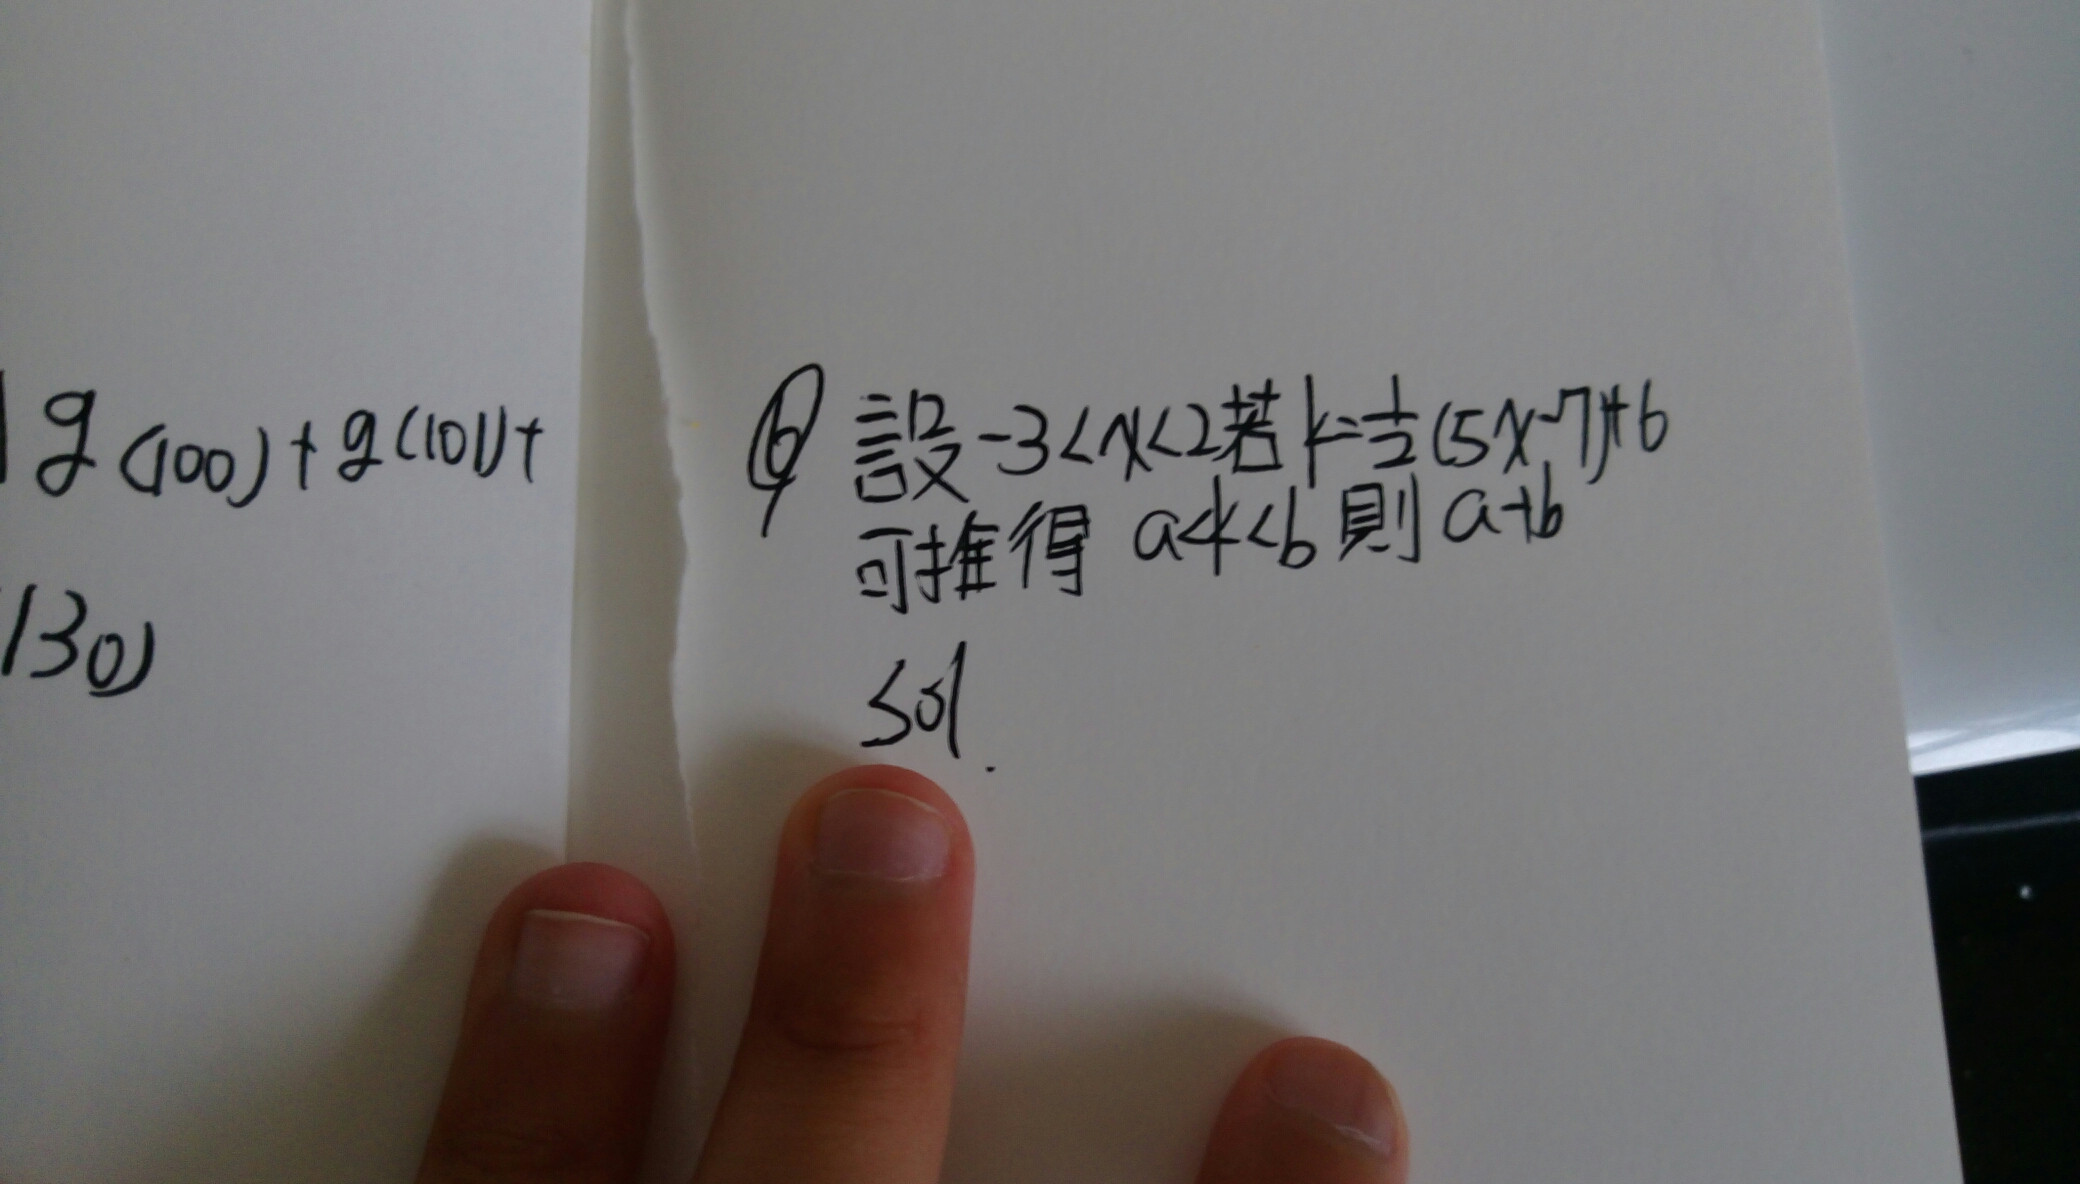 g(100)+g(101)+
130)
⑥ 設-3<x<2若k=½(5x-7)+6
可推得 a<k<b 則 a+b
sol.